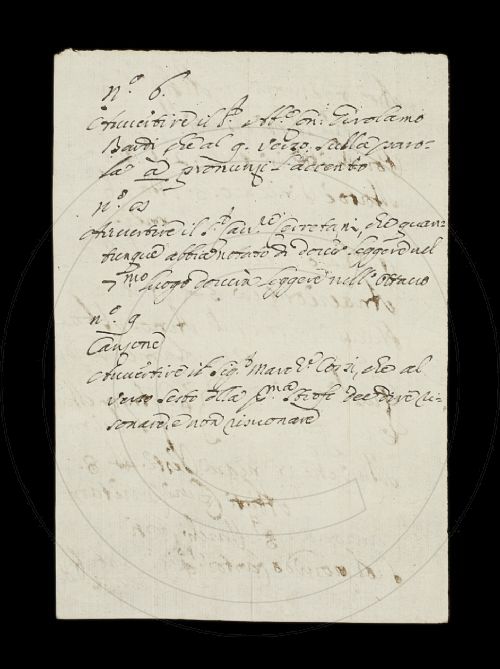 n.º 6.
Avvertire il S.r Abb.e Girolamo
Bardi che al 9. verso sulla paro-
la à pronunzi l'accento
n.º 8
Avvertire il S.r Cerretani, che quan-
tunque abbia notato di dover leggere nel
7.mo luogo dovrà leggere nell'Ottavo
n.º 9
Canzone
Avvertire il Sig.r March.e Corsi, che al
verso sesto della p.ma strofe dee dire ri-
sonare e non risuonare